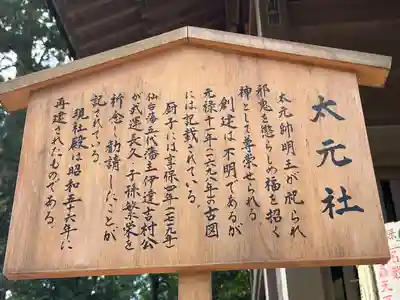 太元社
太元帥明王が祀られ
邪鬼を懲らしめ福を招く
神として尊崇せられる
創建は不明であるが
元禄十一年(一六九八年)の古図
には記載されている。
厨子には享保四年(一七一九年)
仙台藩五代藩主伊達吉村公
が武運長久、子孫繁栄を
祈念し勧請したことが
記されている。
現社殿は昭和五十六年に
再建されたものである。